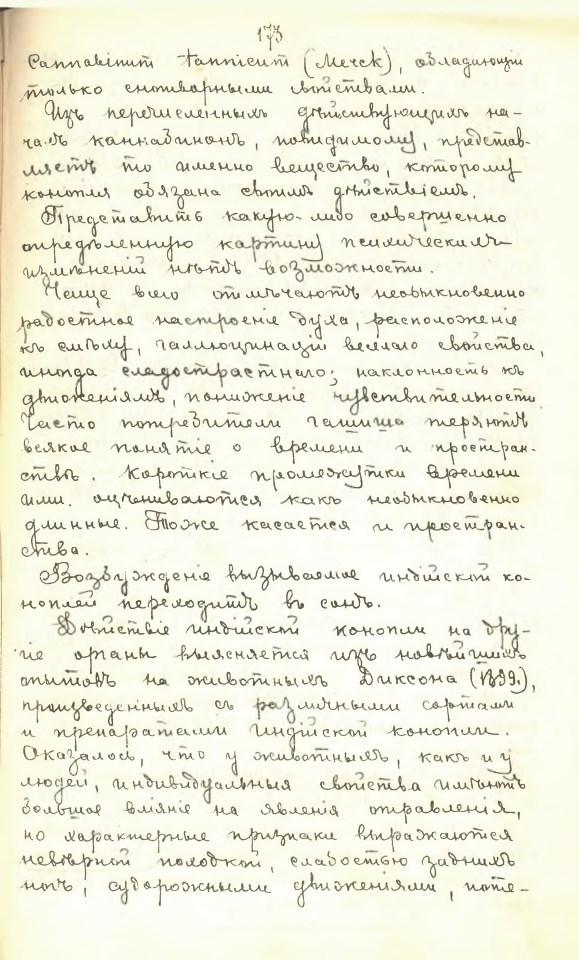 173
Cannabinum tannicum (Мечск), обладающій
только снотворными свойствами.
Изъ перечисленныхъ дѣйствующихъ на-
чалъ каннабинонъ, повидимому, представ-
ляетъ то именно вещество, которому
конопля обязана своимъ дѣйствіемъ.
Представить какую-либо совершенно
опредѣленную картину психическихъ
измѣненій нѣтъ возможности.
Чаще всего отмѣчаютъ необыкновенно
радостное настроеніе духа, расположеніе
къ смѣху, галлюцинаціи веселаго свойства,
иногда сладострастнаго; наклонность къ
движеніямъ, пониженіе чувствительности
Часто потребители гашиша теряютъ
всякое понятіе о времени и простран-
ствѣ. Короткіе промежутки времени
ими. оцѣниваются какъ необыкновенно
длинные. Тоже касается и простран-
ства.
Возбужденіе вызываемое индійской ко-
ноплей переходитъ въ сонъ.
Дѣйствіе индійской конопли на дру-
гіе органы выясняется изъ новѣйшихъ
опытовъ на животныхъ Диксона (1899.),
произведенныхъ съ различными сортами
и препаратами индійской конопли.
Оказалось, что у животныхъ, какъ и у
людей, индивидуальныя свойства имѣютъ
большое вліяніе на явленія отравленія,
но характерные признаки выражаются
невѣрной походкой, слабостью заднихъ
ногъ, судорожными движеніями, поте-